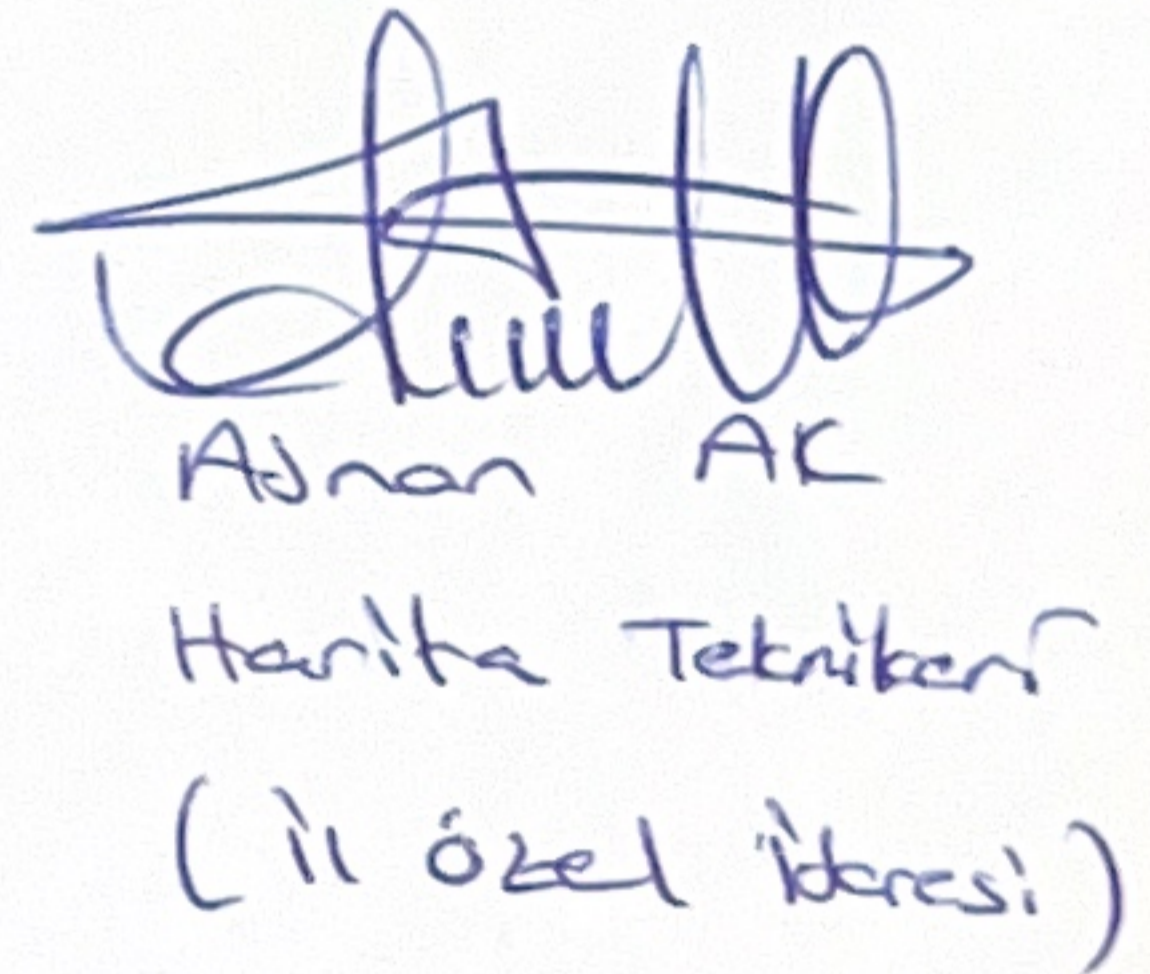 Adnan AK
Harita Teknikeri
(İl Özel İdaresi)